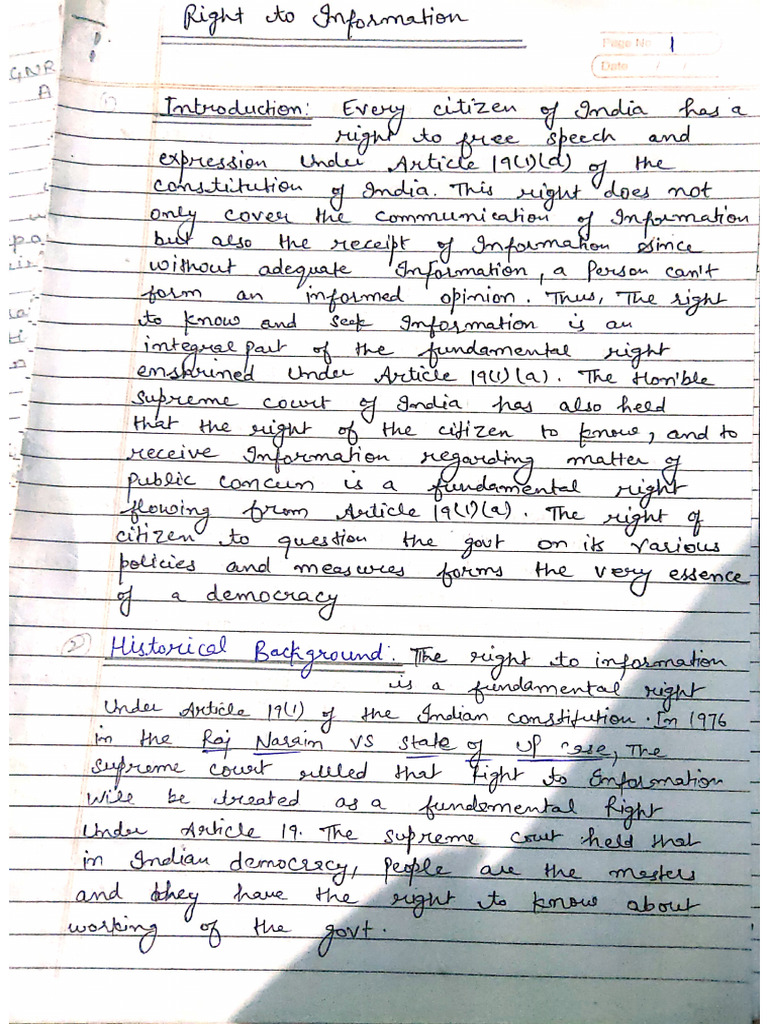 Right to Information
Page No. 1
Date / /
GNR
A
(1) Introduction: Every citizen of India has a
right to free speech and
expression Under Article 19(1)(a) of the
constitution of India. This right does not
only cover the communication of Information
but also the receipt of Information since
without adequate Information, a Person can't
form an informed opinion. Thus, The right
to know and seek Information is an
integral part of the fundamental right
enshrined Under Article 19(1)(a). The Hon'ble
supreme court of India has also held
that the right of the citizen to know, and to
receive Information regarding matter of
public concern is a fundamental right
flowing from Article 19(1)(a). The right of
citizen to question the govt on its various
policies and measures forms the very essence
of a democracy
(2) Historical Background. The right to information
is a fundamental right
Under Article 19(1) of the Indian constitution. In 1976
in the Raj Narain vs state of UP case, The
supreme court ruled that Right to Information
will be treated as a fundamental Right
Under Article 19. The supreme court held that
in Indian democracy, people are the masters
and they have the right to know about
working of the govt.